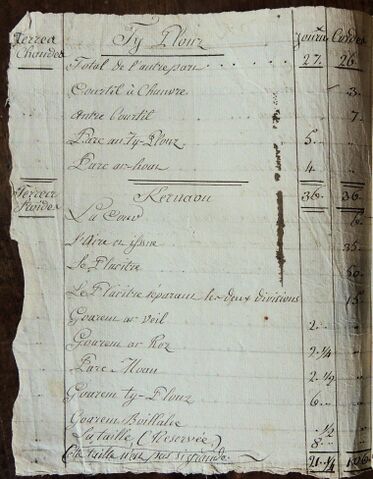 Terres Chaudes Ty Plouz Journ Cordes
Total de l'autre part 27. 26.
Courtil à Chanvre 3.
Autre Courtil 7.
Parc an Ty-Plouz 5.
Parc ar-hoat 4
36. 36.
Terres froides Kernaou
La Cour 6.
L'Aire en issue 35.
Le Placitre 50.
Le Placitre séparant les deux divisions 15.
Goarem ar Veil 2.
Goarem ar Roz 2. 1/4
Parc Moan 2. 1/2
Goarem ty-Plouz 6
Goarem 1/2
La taille (Réservée) 8
Cette taille n'est pas si grande
21. 1/4 106